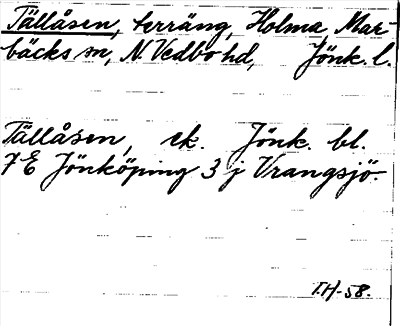 Tällåsen, terräng, Holma Mar-
bäcks sn, N. Vedbo hd, Jönk. l.
Tällåsen, ek. Jönk. bl.
7 E Jönköping 3 j Vrangsjö.
T.H-58.